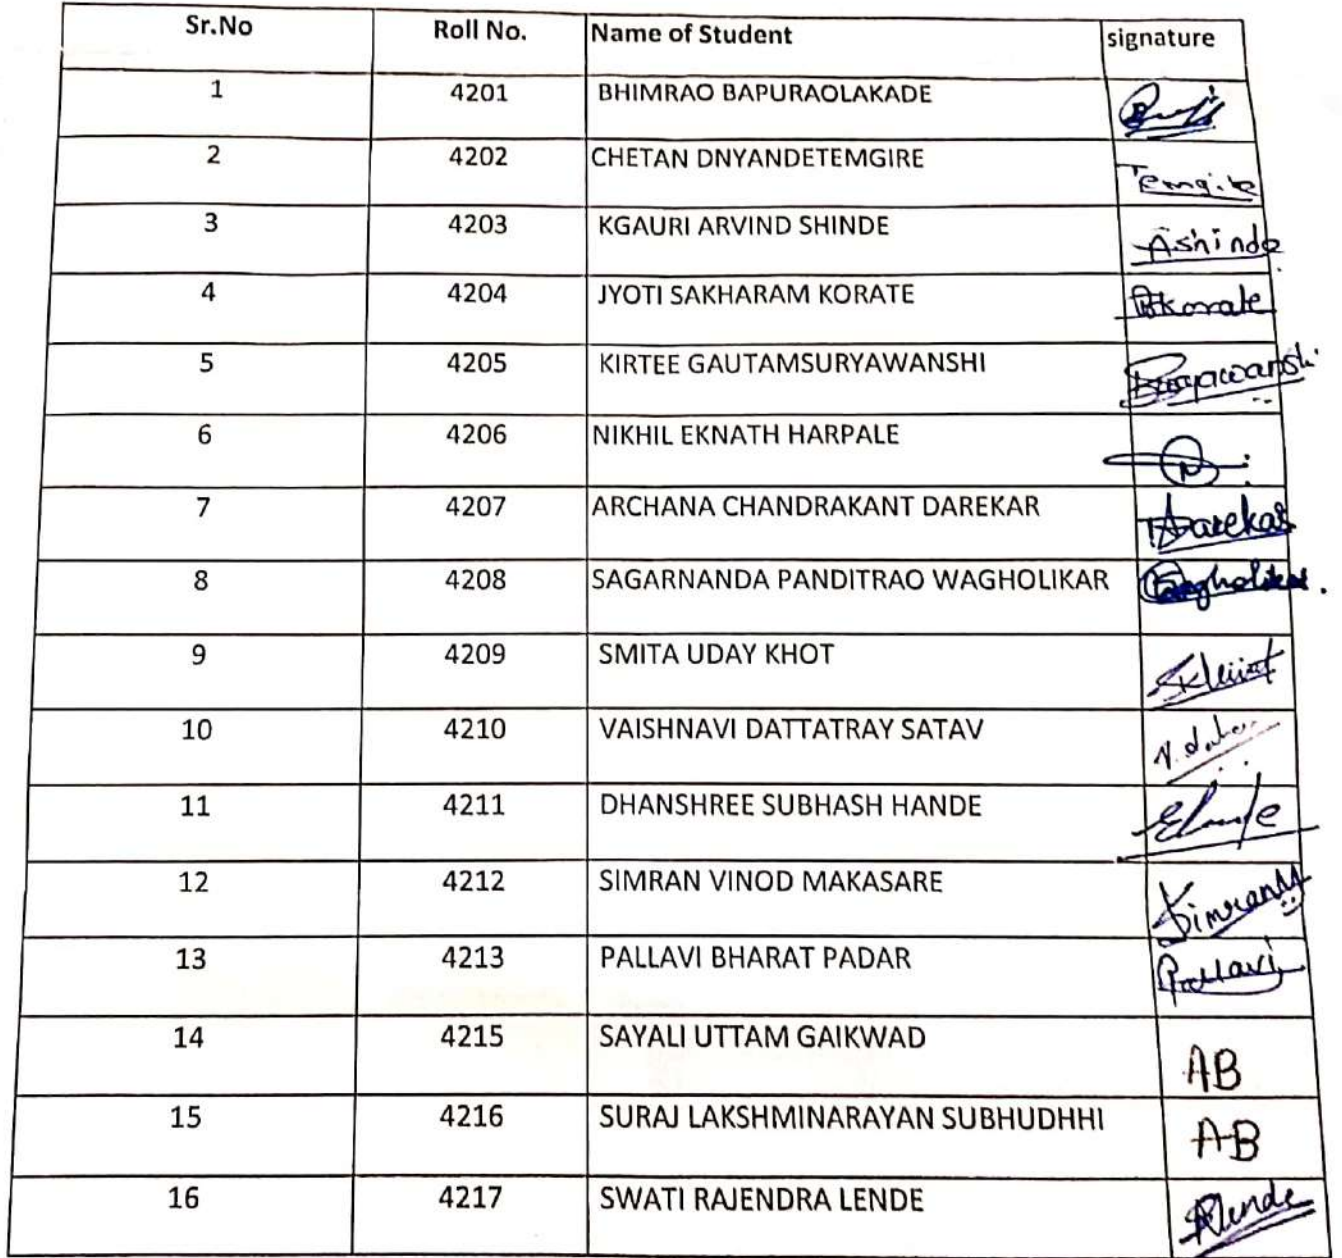 Sr.No Roll No. Name of Student signature
1 4201 BHIMRAO BAPURAOLAKADE
2 4202 CHETAN DNYANDETEMGIRE Temgire
3 4203 KGAURI ARVIND SHINDE AShinde
4 4204 JYOTI SAKHARAM KORATE
5 4205 KIRTEE GAUTAMSURYAWANSHI
6 4206 NIKHIL EKNATH HARPALE
7 4207 ARCHANA CHANDRAKANT DAREKAR
8 4208 SAGARNANDA PANDITRAO WAGHOLIKAR
9 4209 SMITA UDAY KHOT
10 4210 VAISHNAVI DATTATRAY SATAV
11 4211 DHANSHREE SUBHASH HANDE
12 4212 SIMRAN VINOD MAKASARE SimranM
13 4213 PALLAVI BHARAT PADAR Pallavi
14 4215 SAYALI UTTAM GAIKWAD AB
15 4216 SURAJ LAKSHMINARAYAN SUBHUDHHI AB
16 4217 SWATI RAJENDRA LENDE